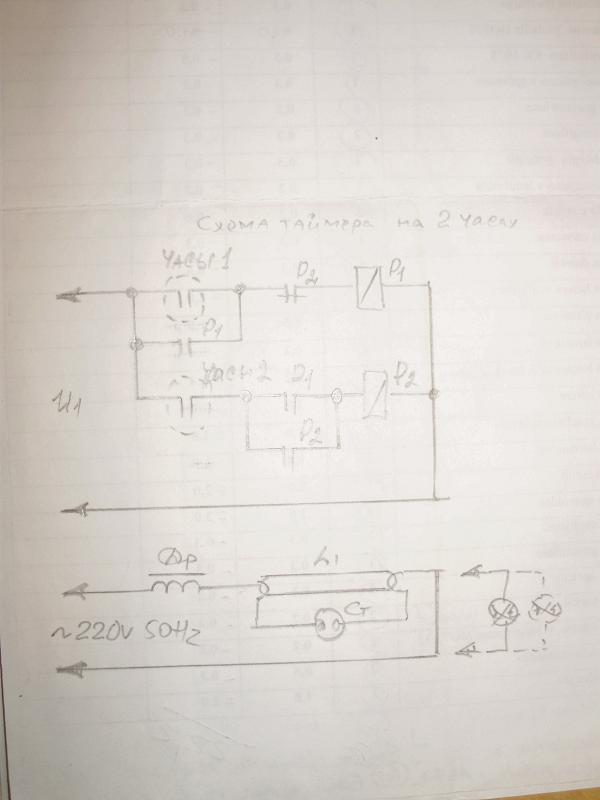 Схема таймера на 2 часах
ЧАСЫ 1
P2
P1
P1
ЧАСЫ 2
P1
P2
U1
P2
Др
L1
Ст
~220V 50Hz